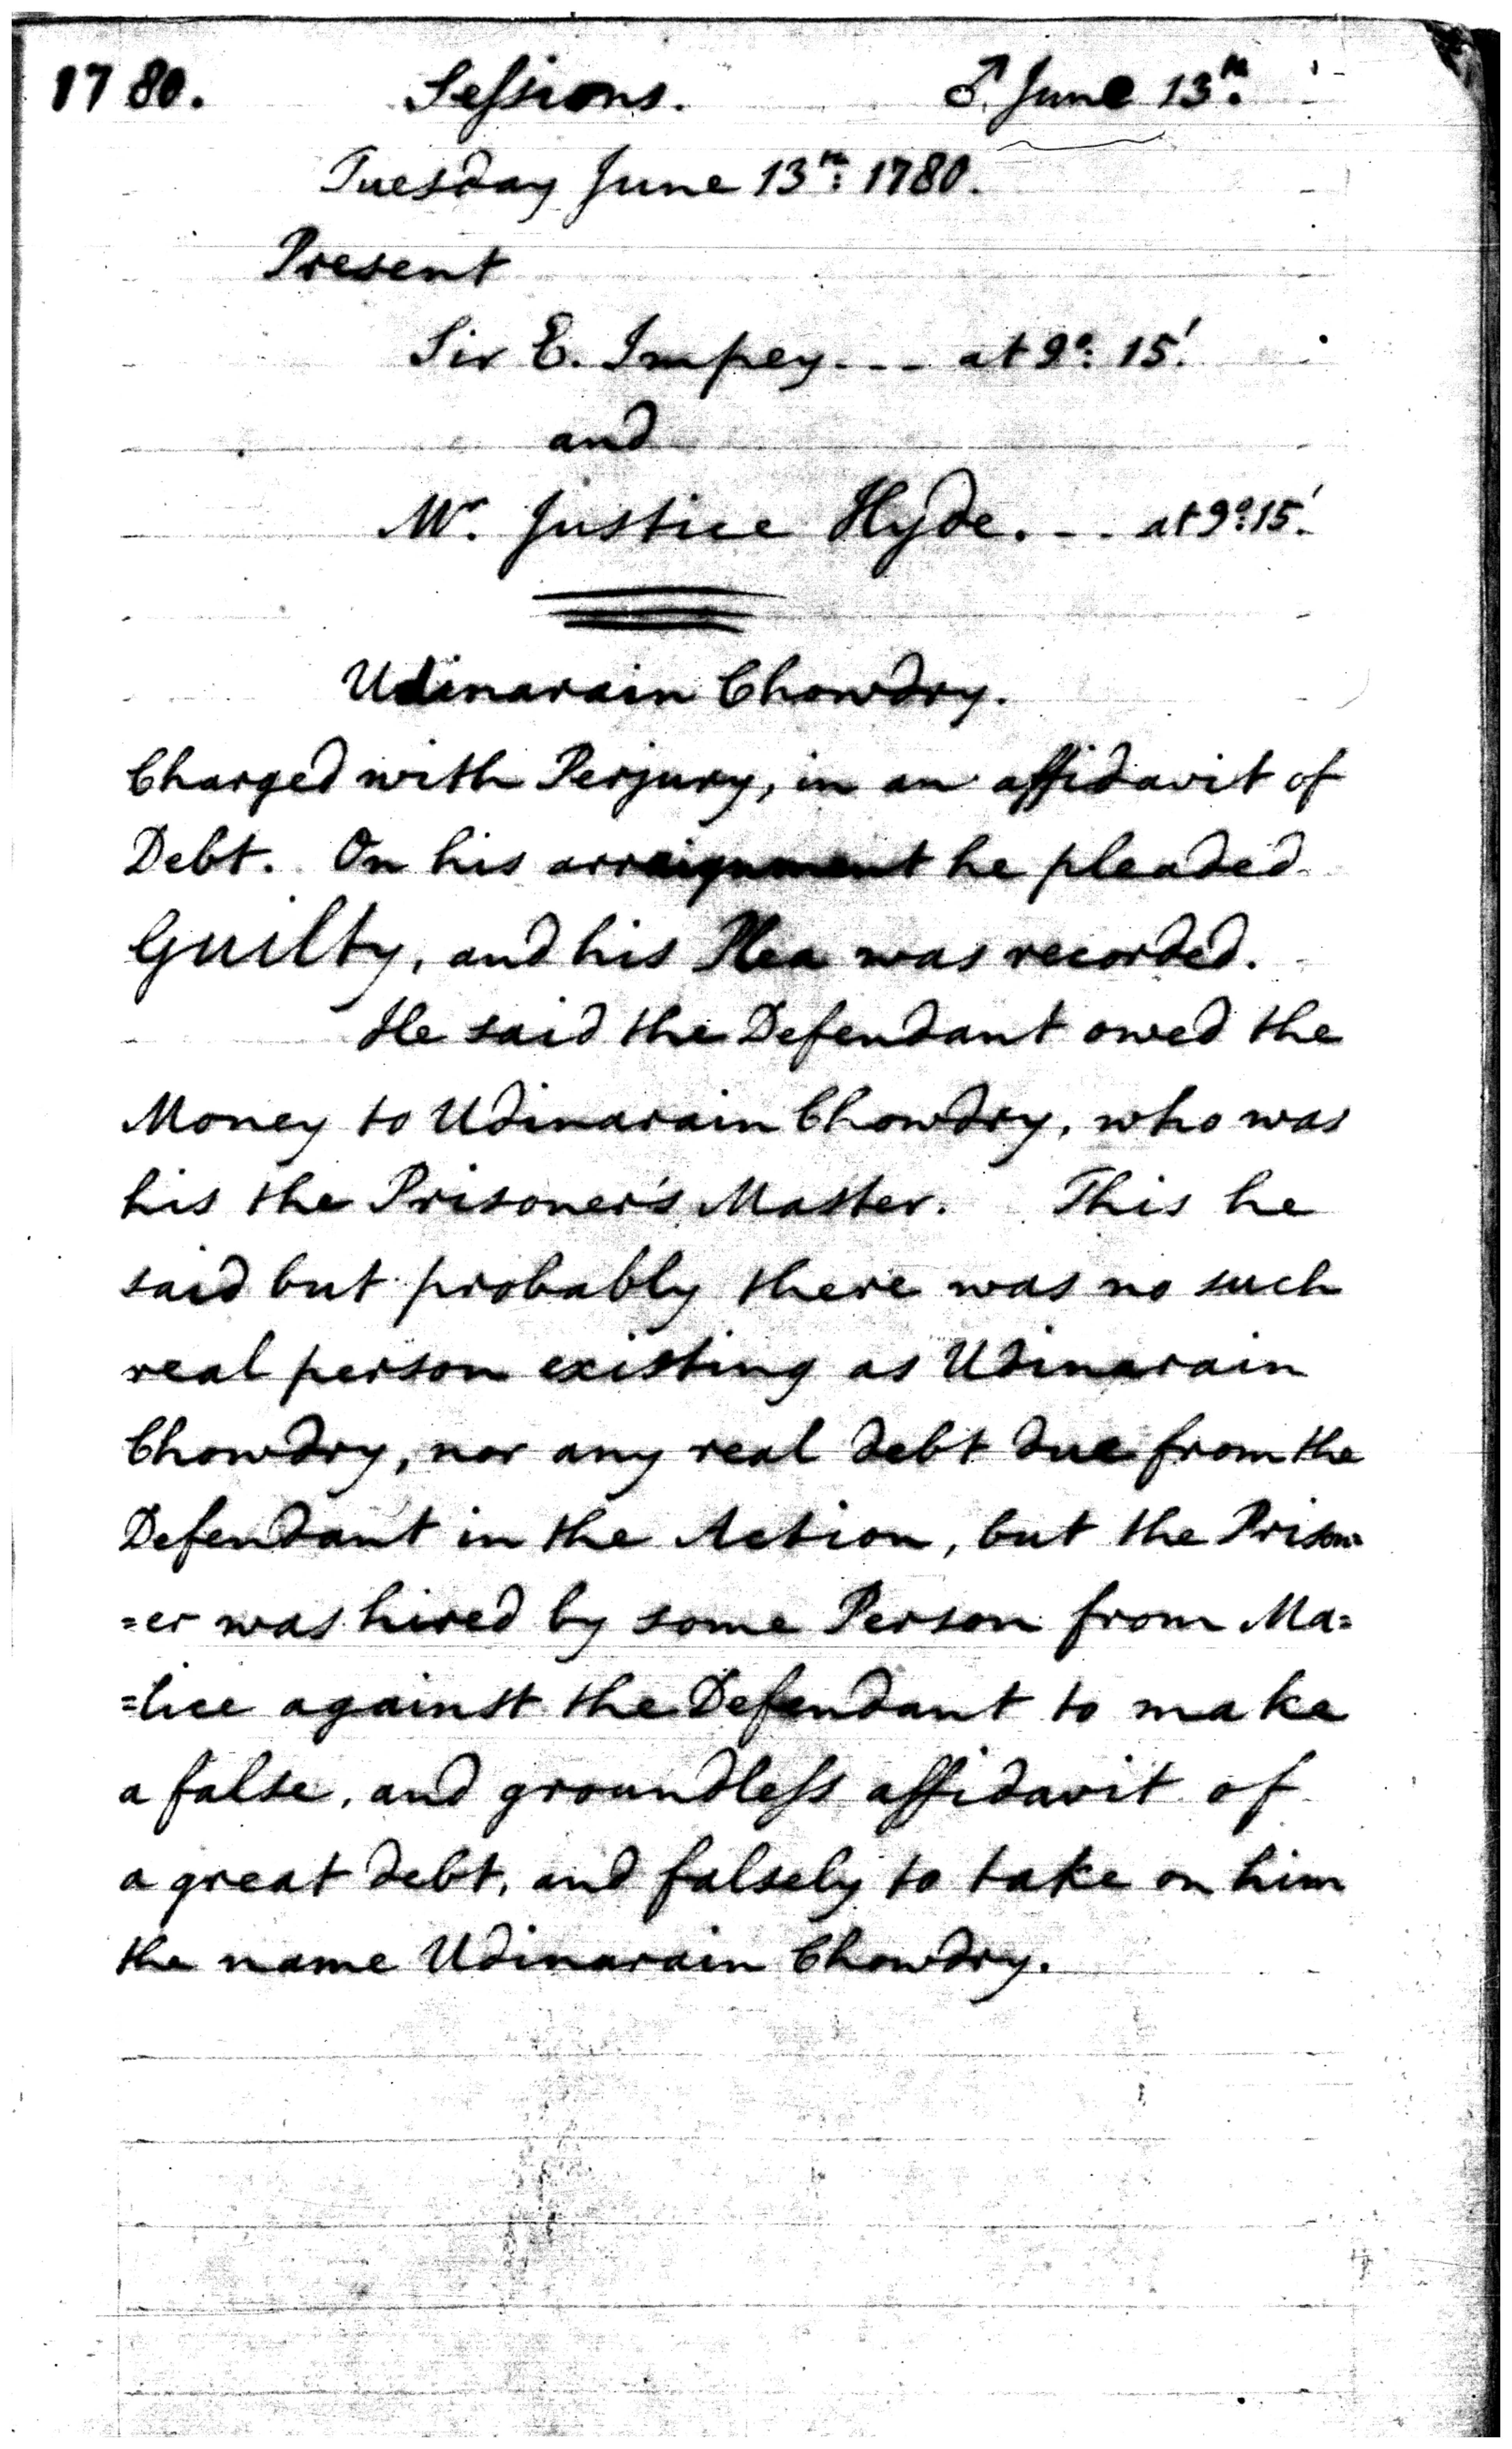 1780. Sessions. ♂ June 13th.
Tuesday June 13th: 1780.
Present
Sir E. Impey --- at 9o: 15'.
and
Mr. Justice Hyde. -- at 9o: 15'.
Udinarain Chowdry.
Charged with Perjury, in an affidavit of
Debt. On his arraignment he pleaded
Guilty, and his Plea was recorded.
He said the Defendant owed the
Money to Udinarain Chowdry, who was
his the Prisoner's Master. This he
said but probably there was no such
real person existing as Udinarain
Chowdry, nor any real debt due from the
Defendant in the Action, but the Prison-
=er was hired by some Person from Ma=
=lice against the Defendant to make
a false, and groundleſs affidavit of
a great debt, and falsely to take on him
the name Udinarain Chowdry.